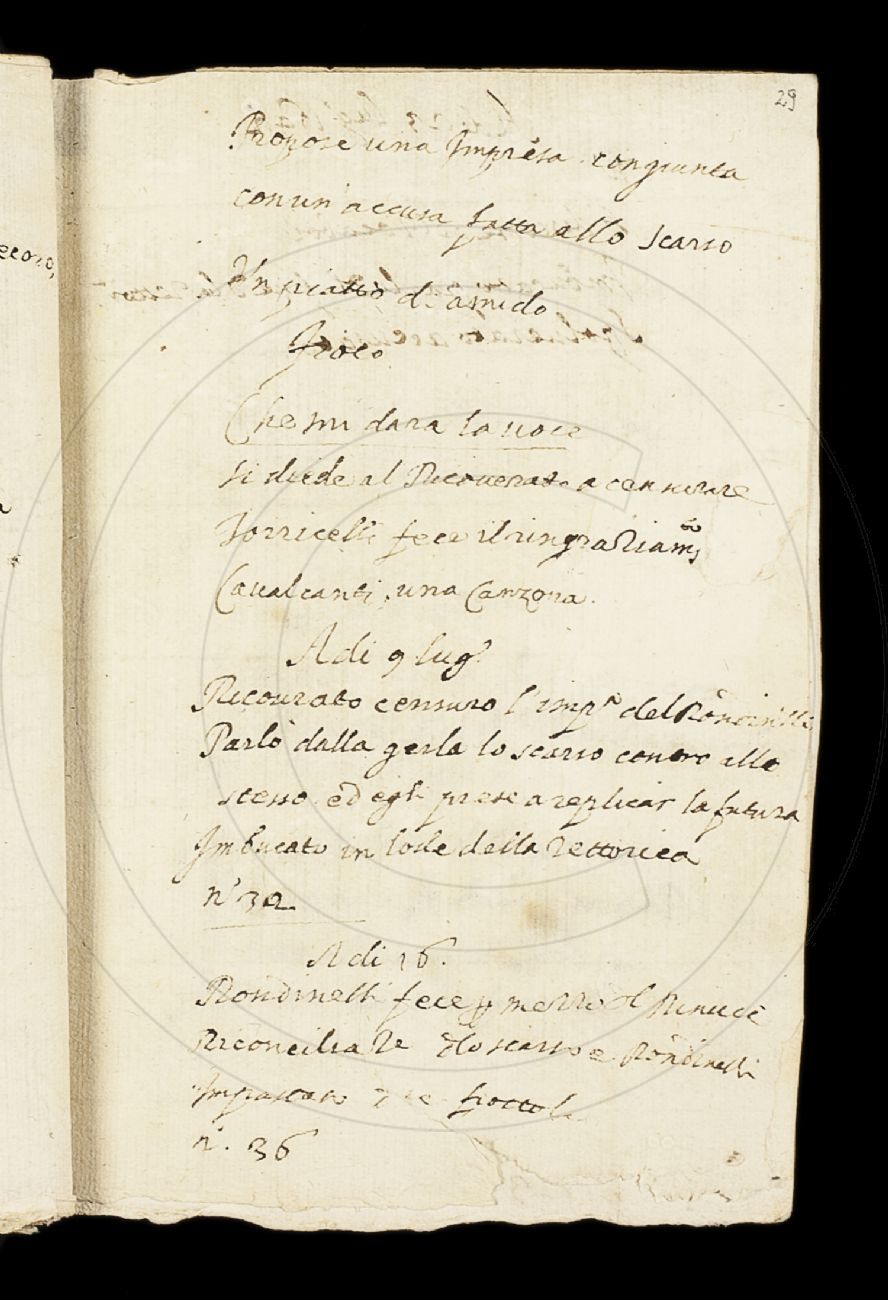 29
Propose una Impresa congiunta
con un'accusa fatta allo Scarso
Un piatto d'amido
Fioco
Che mi darà la voce
Si diede al Ricouerato a censurare
Torricelli fece il ringraziam.to
Caualcanti, una Canzona.
A di 9 lug.o
Ricourato censurò l'imp.a del Rondinelli
Parlò dalla gerla lo scarso contro allo
stesso ed egli prese a replicar la futura
Imbucato in lode della Rettorica
n.o 32
A di 16.
Rondinelli fece p mezzo d Rinucc
Riconciliare lo scarso e Rondinelli
Impastato
n. 36
ecoro,